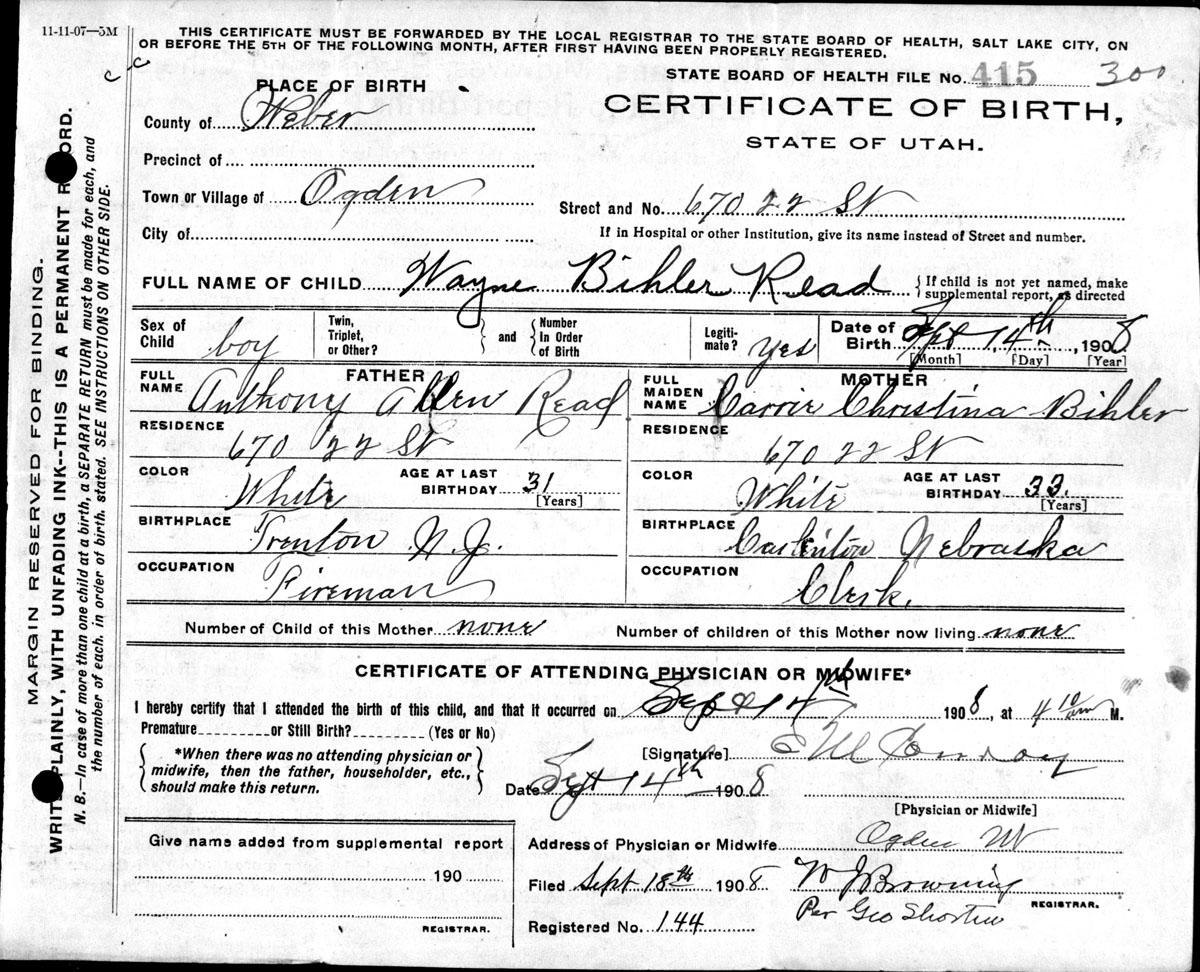 11-11-07—5M
THIS CERTIFICATE MUST BE FORWARDED BY THE LOCAL REGISTRAR TO THE STATE BOARD OF HEALTH, SALT LAKE CITY, ON
OR BEFORE THE 5TH OF THE FOLLOWING MONTH, AFTER FIRST HAVING BEEN PROPERLY REGISTERED.
STATE BOARD OF HEALTH FILE No. 415 300
PLACE OF BIRTH
CERTIFICATE OF BIRTH,
County of Weber
STATE OF UTAH.
Precinct of
Town or Village of Ogden
Street and No. 670 22 St
City of
If in Hospital or other Institution, give its name instead of Street and number.
FULL NAME OF CHILD Wayne Bihler Read { If child is not yet named, make
supplemental report, as directed
Sex of Child boy Twin, Triplet, or Other? } and { Number In Order of Birth Legiti-mate? Yes Date of Birth Sept 14th, 1908
[Month] [Day] [Year]
FATHER
FULL NAME Anthony Allen Read
RESIDENCE 670 22 St
COLOR White AGE AT LAST BIRTHDAY 31 [Years]
BIRTHPLACE Trenton N.J.
OCCUPATION Fireman
MOTHER
FULL MAIDEN NAME Carrie Christina Bihler
RESIDENCE 670 22 St
COLOR White AGE AT LAST BIRTHDAY 33. [Years]
BIRTHPLACE Nebraska
OCCUPATION Clerk.
Number of Child of this Mother none Number of children of this Mother now living none
CERTIFICATE OF ATTENDING PHYSICIAN OR MIDWIFE*
I hereby certify that I attended the birth of this child, and that it occurred on Sept 14th 1908, at 4 10 am M.
Premature or Still Birth? (Yes or No)
{ *When there was no attending physician or
midwife, then the father, householder, etc.,
should make this return. }
[Signature] E M Conroy
Date Sept 14th 1908
[Physician or Midwife]
Give name added from supplemental report
190
REGISTRAR.
Address of Physician or Midwife Ogden Ut
Filed Sept 18th 1908 W J Browning
REGISTRAR.
Per Geo Shorten
Registered No. 144
MARGIN RESERVED FOR BINDING.
WRITE PLAINLY, WITH UNFADING INK--THIS IS A PERMANENT R ORD.
N. B.—In case of more than one child at a birth, a SEPARATE RETURN must be made for each, and
the number of each, in order of birth, stated. SEE INSTRUCTIONS ON OTHER SIDE.